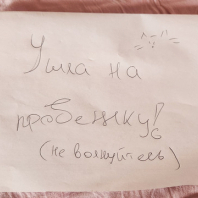 Ушла на
пробежку!
(не волнуйтесь)